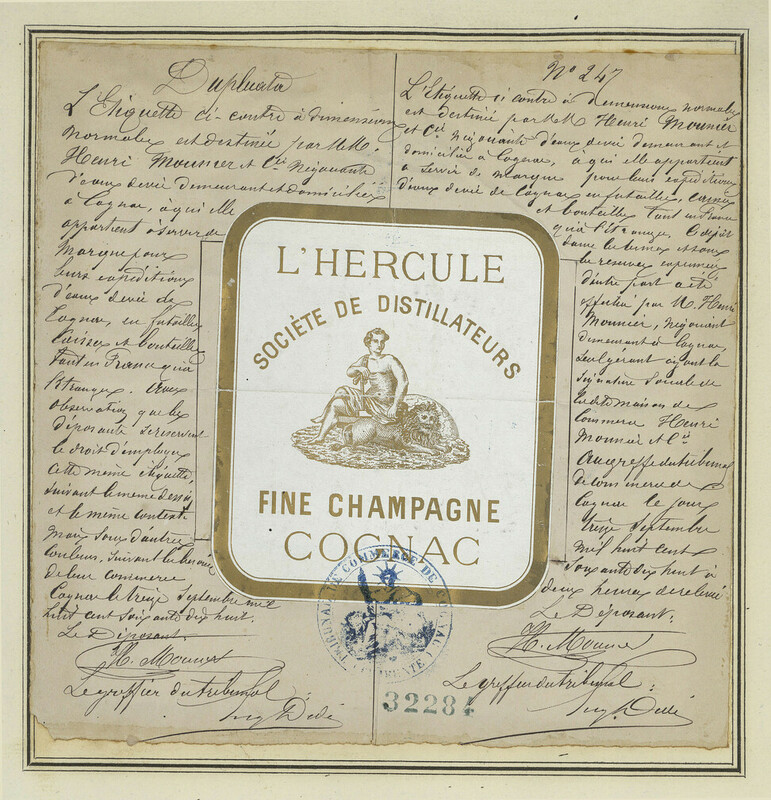 Duplicata
L'Etiquette ci-contre à dimensions
normales est destinée par MM.
Henri Mounier et Cie Négociants
d'eaux de vie demeurant et domiciliés
à Cognac, à qui elle
appartient à servir de
Marque pour
leurs expéditions
d'eaux de vie de
Cognac, en futailles
Caisses et bouteilles
tant en France qu'à
l'étranger. Sous
observation que les
déposants se réservent
le droit d'employer
cette même étiquette,
suivant le même dessin
et le même contexte
mais sous d'autres
couleurs, suivant le besoin
de leur commerce
Cognac le treize Septembre mil
huit cent soixante dix huit.
Le Déposant
H. Mounier
Le greffier du tribunal :
No 247
L'Etiquette ci contre à dimensions normales
est destinée par MM Henri Mounier
et Cie Négociants d'eaux de vie demeurant et
domiciliés à Cognac, à qui elle appartient
à servir de marque pour leurs expéditions
d'eaux de vie de Cognac en futailles, caisses
et bouteilles tant en France
qu'à l'étranger, Ce dépôt
dans les termes et sous
les réserves exprimées
d'autre part a été
effectué par M. Henri
Mounier, négociant
demeurant à Cognac,
seul gérant ayant la
signature sociale de
la dite maison de
Commerce Henri
Mounier et Cie
au greffe du tribunal
de commerce de
Cognac le jour
treize Septembre
mil huit cent
soixante dix huit à
deux heures de relevée
Le Déposant.
H. Mounier
Le greffier du tribunal :
L'HERCULE
SOCIÈTE DE DISTILLATEURS
FINE CHAMPAGNE
COGNAC
TRIBUNAL DE COMMERCE DE COGNAC
CHARENTE
32284